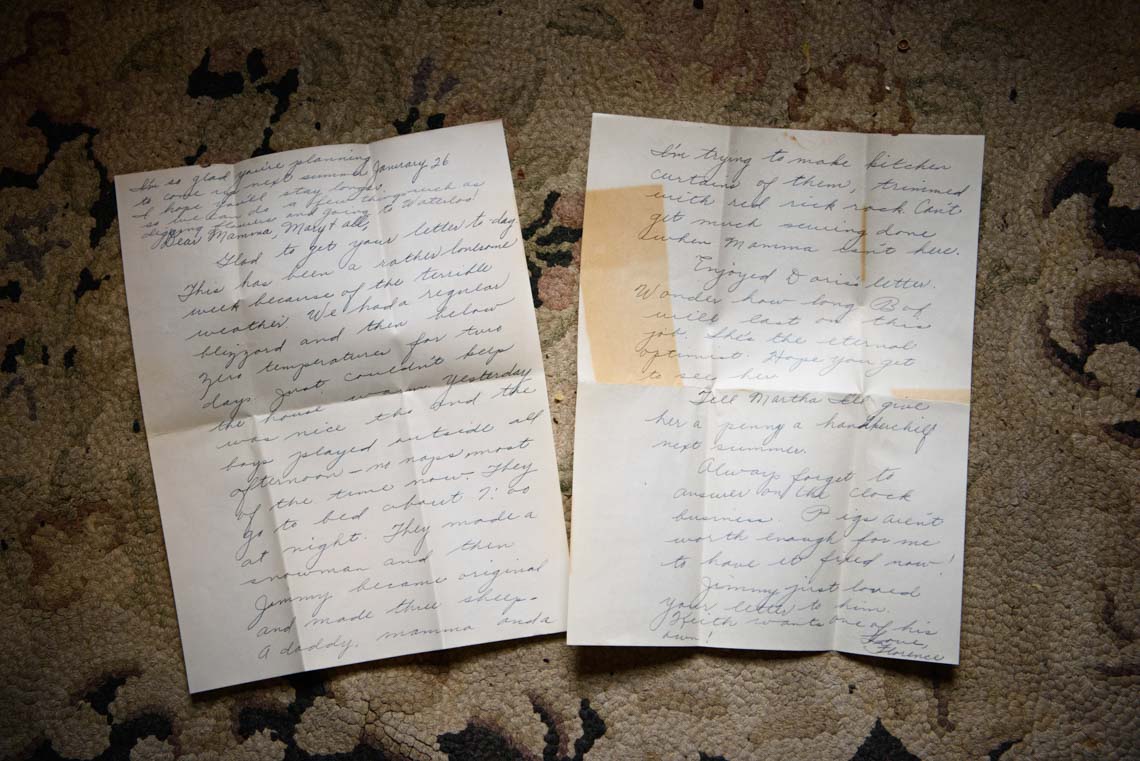 I'm so glad you're planning
to come next summer. January 26
I hope you'll stay longer
so we can do a few things such as
digging flowers and going to Waterloo!
Dear Mamma, Mary & all,
Glad to get your letter to-day
This has been a rather lonesome
week because of the terrible
weather. We had a regular
blizzard and then below
zero temperatures for two
days. Just couldn't keep
the house warm. Yesterday
was nice tho and the
boys played outside all
afternoon - no naps most
of the time now. They
go to bed about 7:00
at night. They made a
snowman and then
Jimmy became original
and made three sheep -
A daddy, mamma and a
I'm trying to make kitchen
curtains of them, trimmed
with red rick rack. Can't
get much sewing done
when Mamma isn't here.
Enjoyed Doris' letter.
Wonder how long B of
will last on this
job! She's the eternal
optimist. Hope you get
to see her.
Tell Martha I'll give
her a penny a handkerchief
next summer.
Always forget to
answer on the clock
business. Pigs aren't
worth enough for me
to have it fixed now!
Jimmy just loved
your letter to him.
Keith wants one of his
own!
Love,
Florence